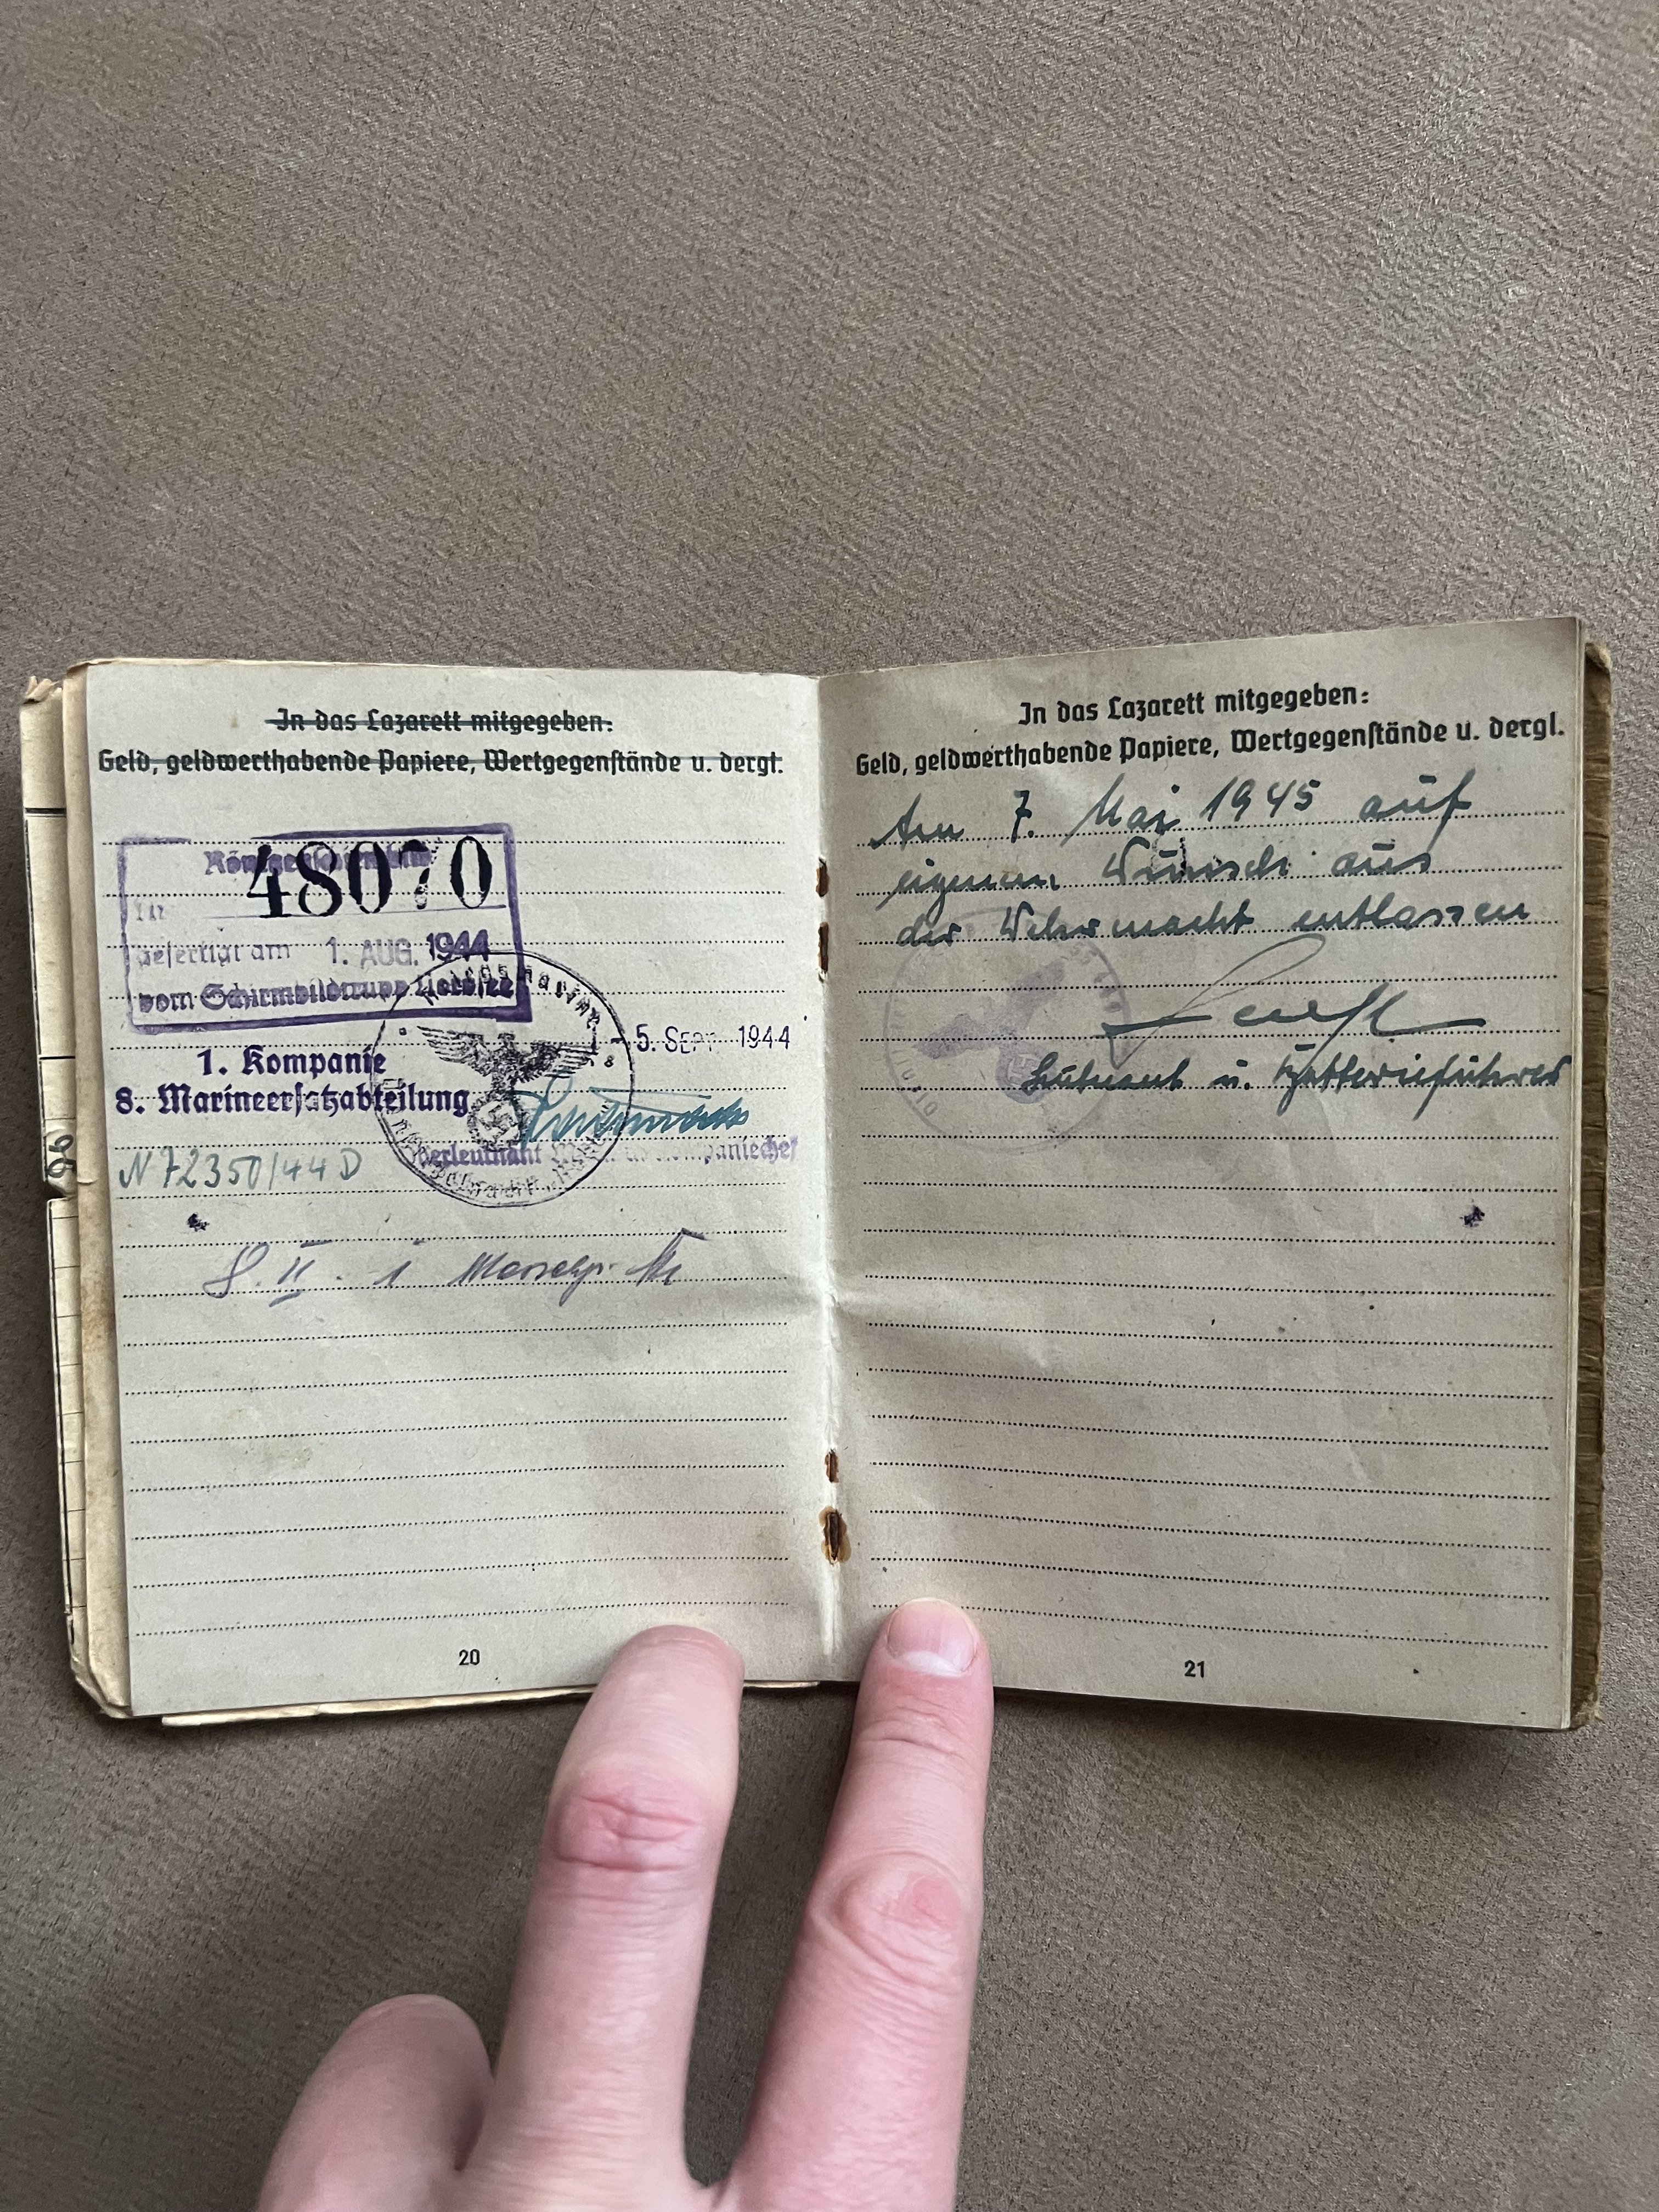 In das Lazarett mitgegeben:
Geld, geldwerthabende Papiere, Wertgegenstände u. dergl.
48070
gefertigt am 1. AUG. 1944
vom Schirmbildtrupp
- 5. SEPT. 1944
1. Kompanie
8. Marineersatzabteilung
Oberleutnant Kompaniechef
N 72350/44 D
II. i
20
In das Lazarett mitgegeben:
Geld, geldwerthabende Papiere, Wertgegenstände u. dergl.
Am 7. Mai 1945 auf
eigenen Wunsch aus
der Wehrmacht entlassen
Leutnant u. Batterieführer
21